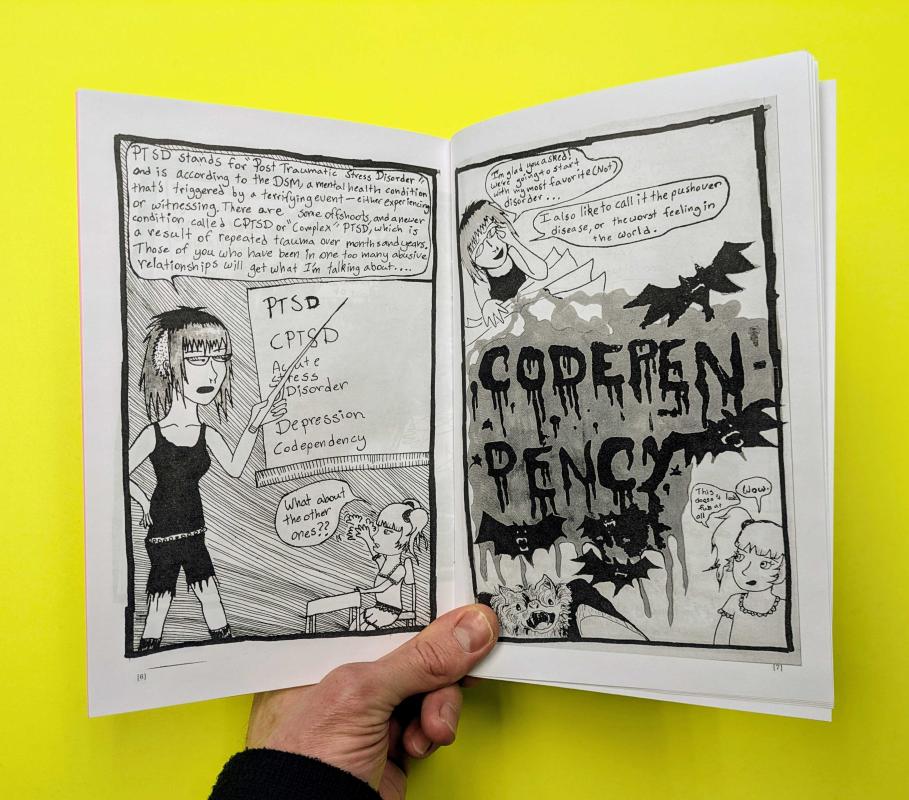 PTSD stands for "Post Traumatic Stress Disorder",
and is according to the DSM, a mental health condition
that's triggered by a terrifying event — either experiencing
or witnessing. There are some offshoots, and a newer
condition called CPTSD or "Complex" PTSD, which is
a result of repeated trauma over months and years.
Those of you who have been in one too many abusive
relationships will get what I'm talking about....
PTSD
CPTSD
Acute
stress
Disorder
Depression
Codependency
What about
the other
ones??
[6]
I'm glad you asked!
We're going to start
with my most favorite (Not)
disorder...
I also like to call it the pushover
disease, or the worst feeling in
the world.
CODEPEN-
DENCY
This
doesn't look
fun at
all
Wow.
[7]